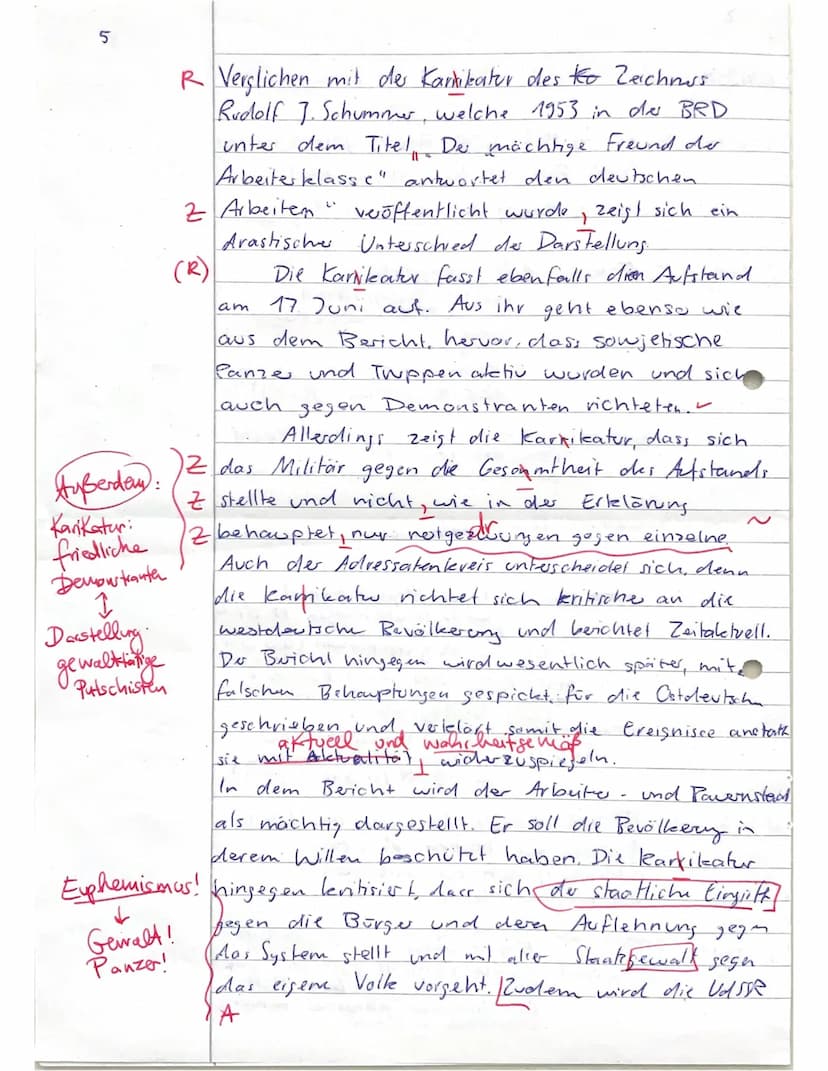 5
R Verglichen mit der Karrikatur des Zeichners
Rudolf J. Schummer, welche 1953 in der BRD
unter dem Titel „Der mächtige Freund der
Arbeiterklasse" antwortet den deutschen
Z Arbeitern" veröffentlicht wurde, zeigt sich ein
drastischer Unterschied der Darstellung.
(R) Die Karrikatur fasst ebenfalls den Aufstand
am 17 Juni auf. Aus ihr geht ebenso wie
aus dem Bericht, hervor, dass sowjetische
Panzer und Truppen aktiv wurden und sich
auch gegen Demonstranten richteten.
Allerdings zeigt die Karrikatur, dass sich
Z das Militär gegen die Gesammtheit des Aufstands
Z stellte und nicht, wie in der Erklärung
Z behauptet, nur notgedrungen gegen einzelne.
Außerdem:
Karikatur:
friedliche
Demonstranten
↕
Darstellung:
gewalttätige
Putschisten
Auch der Adressatenkreis unterscheidet sich, denn
die Karrikatur richtet sich kritische an die
westdeutsche Bevölkerung und berichtet Zeitaktuell.
Der Bericht hingegen wird wesentlich später, mit
falschen Behauptungen gespickt für die Ostdeutschen
geschrieben und verklärt somit die Ereignisse anstatt
aktuell und wahrheitsgemäß
sie mit Aktualität, widerzuspiegeln.
In dem Bericht wird der Arbeiter- und Bauernstaat
als mächtig dargestellt. Er soll die Bevölkerung in
derem Willen beschützt haben. Die Karrikatur
hingegen kritisiert, dass sich der staatliche Eingriff
gegen die Bürger und deren Auflehnung gegen
das System stellt und mit aller Staatsgewalt gegen
das eigene Volk vorgeht. Zudem wird die UdSSR
Euphemismus!
↓
Gewalt!
Panzer!
A